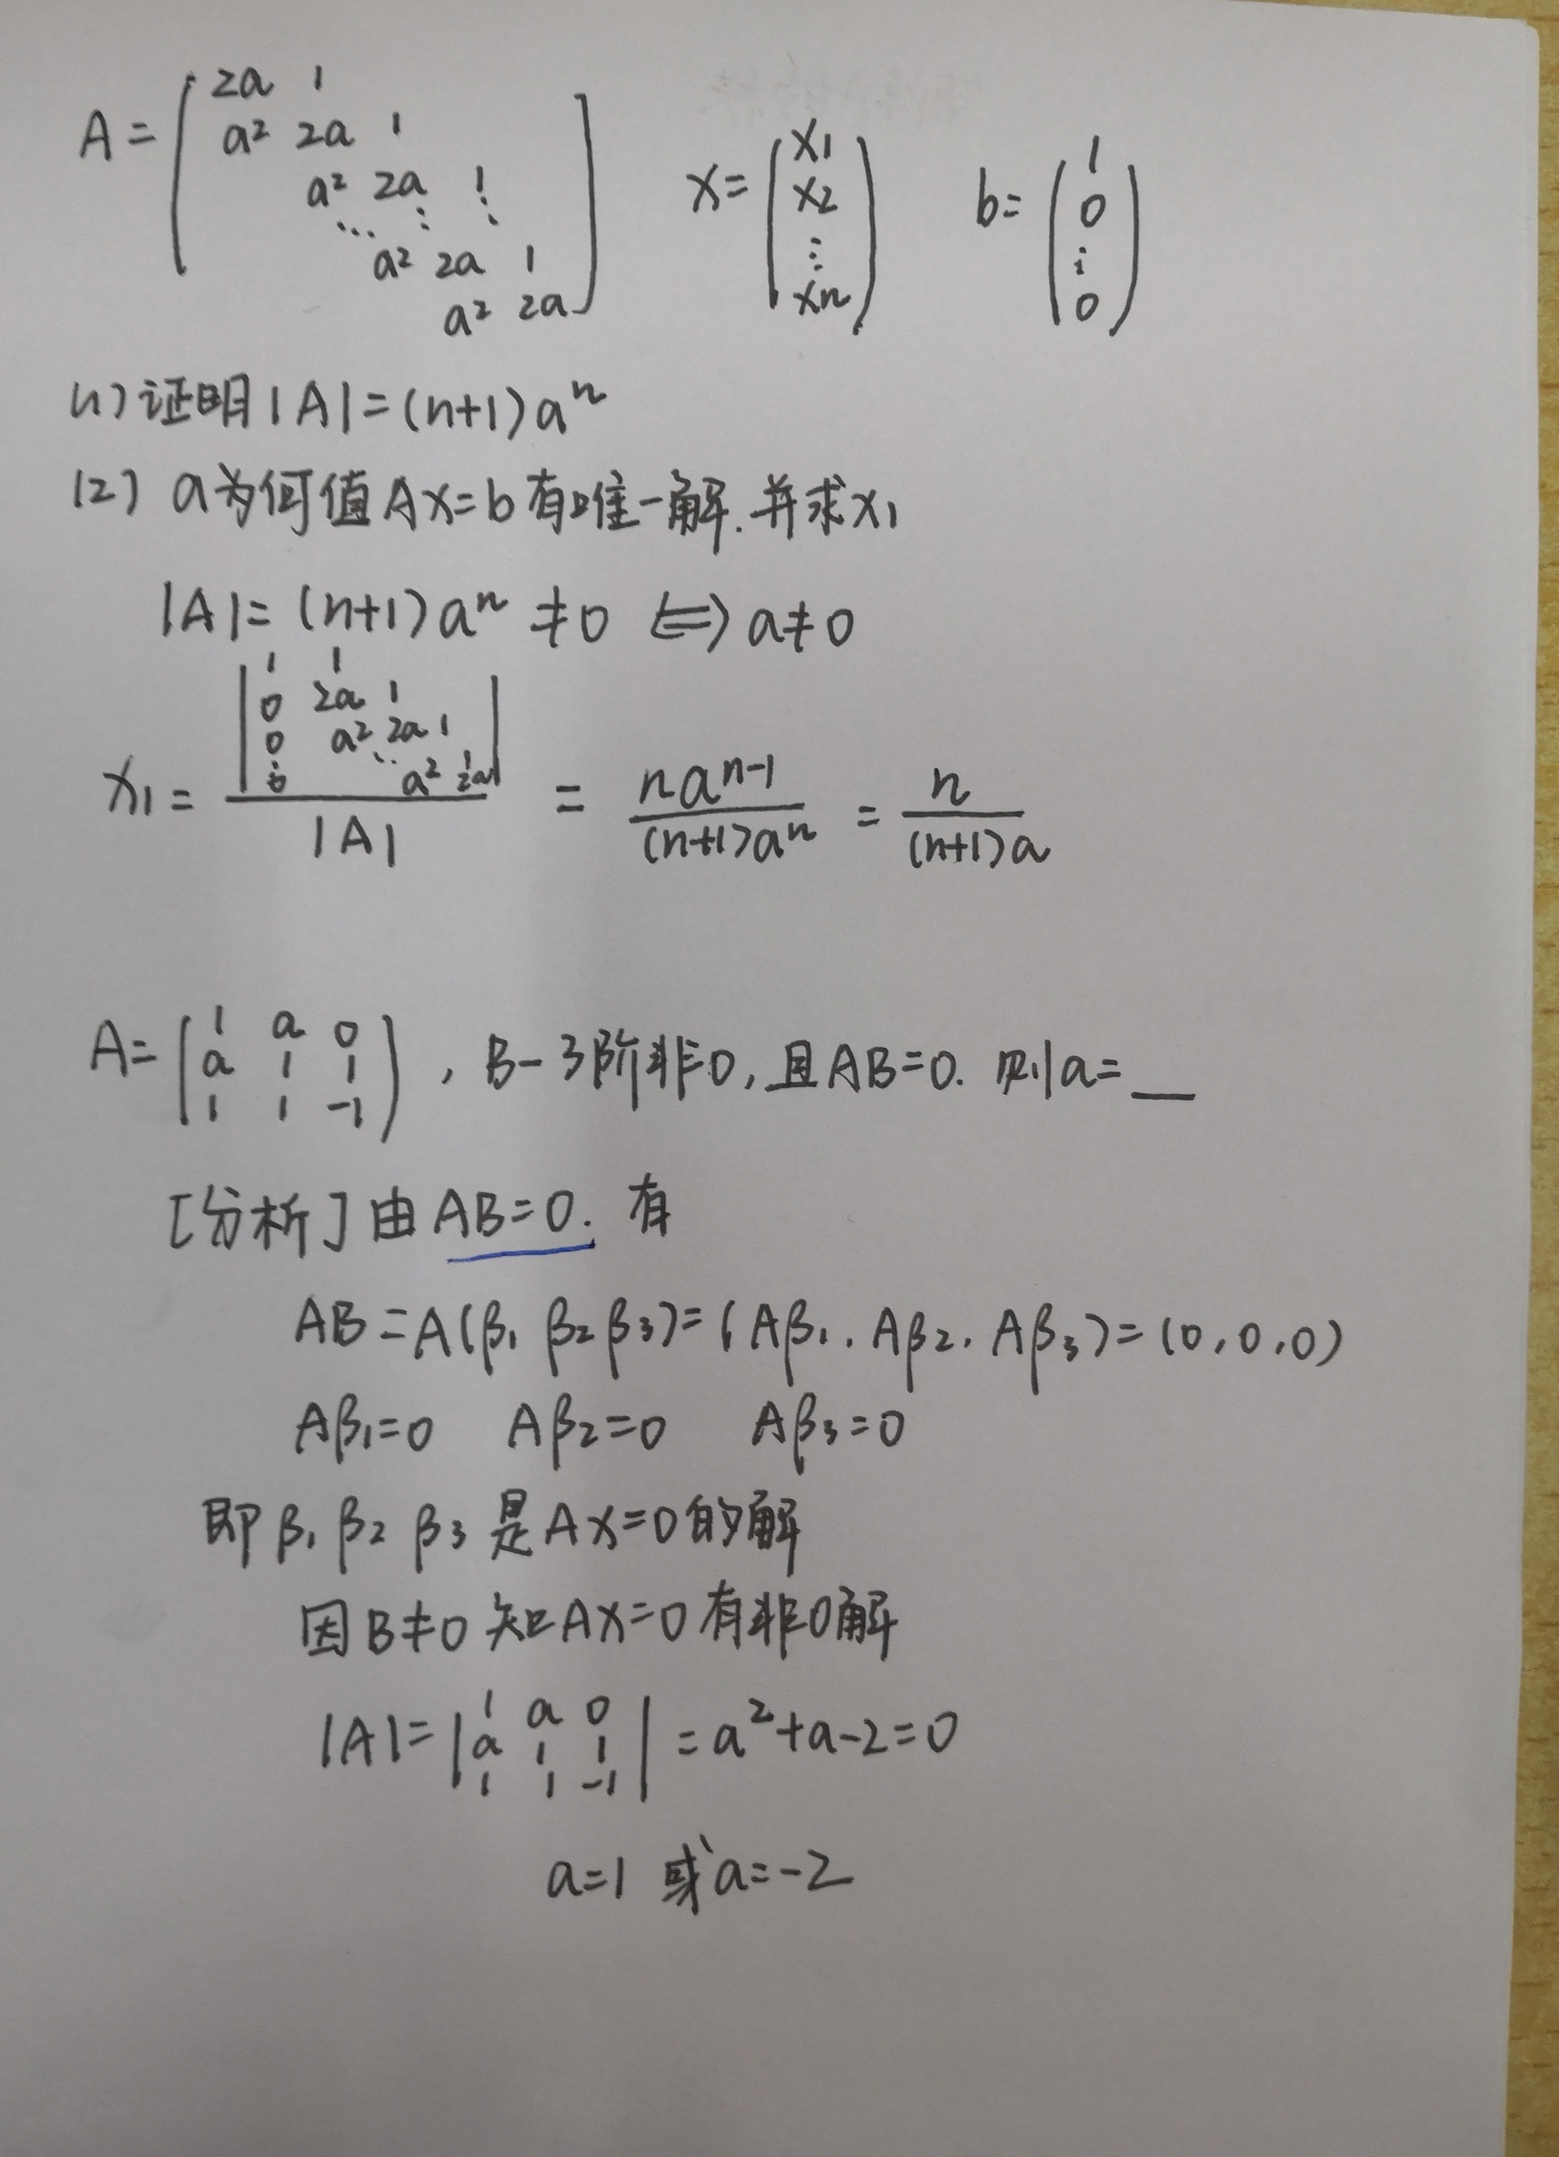 A = [ 2a 1
a² 2a 1
a² 2a 1
⋱ ⋮ ⋱
a² 2a 1
a² 2a ] x = ( x₁ x₂ ⋮ xₙ ) b = ( 1 0 ⋮ 0 )
(1) 证明 |A| = (n+1)aⁿ
(2) a为何值 Ax=b 有唯一解. 并求x₁
|A| = (n+1)aⁿ ≠ 0 ⇔ a≠0
x₁ = | 1 1
0 2a 1
0 a² 2a 1
⋮ ⋱ 1
0 a² 2a | / |A| = naⁿ⁻¹ / (n+1)aⁿ = n / (n+1)a
A = ( 1 a 0
a 1 1
1 1 -1 ) , B-3阶非0, 且AB=0. 则a=__
[分析] 由 AB=0. 有
AB = A(β₁ β₂ β₃) = (Aβ₁, Aβ₂, Aβ₃) = (0,0,0)
Aβ₁=0 Aβ₂=0 Aβ₃=0
即 β₁ β₂ β₃ 是 Ax=0 的解
因 B≠0 知 Ax=0 有非0解
|A| = | 1 a 0
a 1 1
1 1 -1 | = a²+a-2=0
a=1 或 a=-2